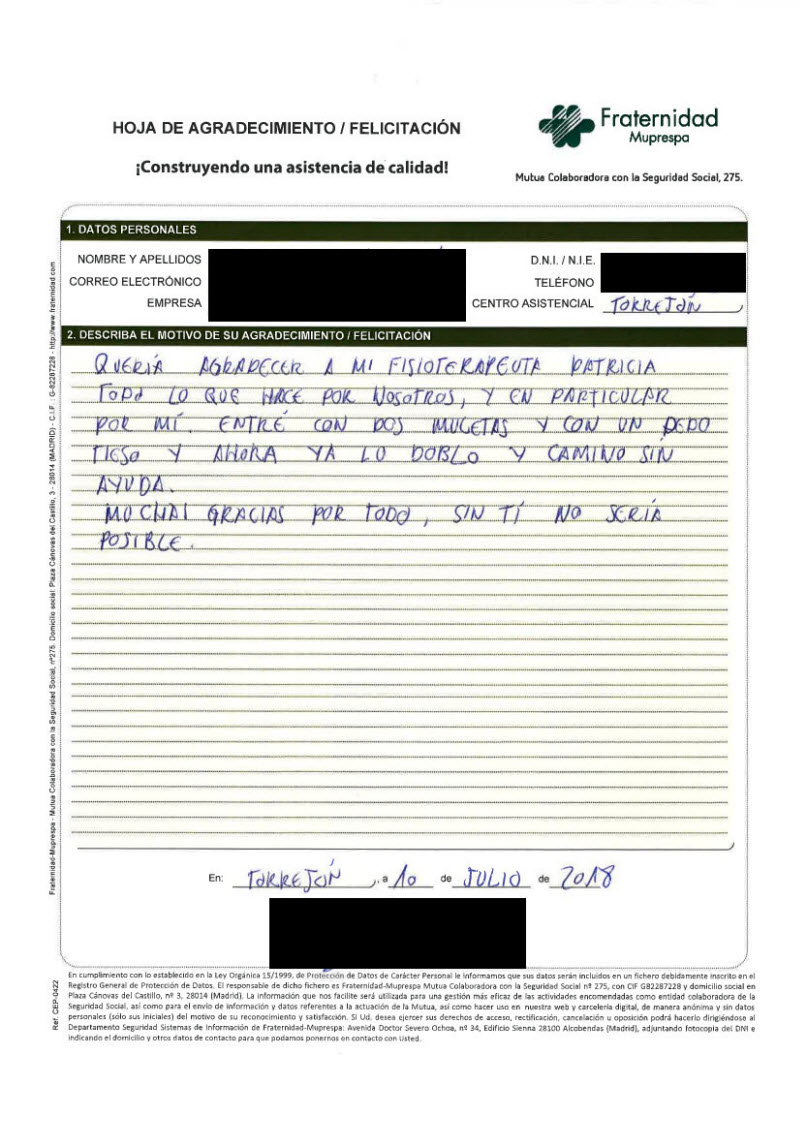 HOJA DE AGRADECIMIENTO / FELICITACIÓN
¡Construyendo una asistencia de calidad!
Fraternidad
Muprespa
Mutua Colaboradora con la Seguridad Social, 275.
1. DATOS PERSONALES
NOMBRE Y APELLIDOS
CORREO ELECTRÓNICO
EMPRESA
D.N.I. / N.I.E.
TELÉFONO
CENTRO ASISTENCIAL TORREJÓN
2. DESCRIBA EL MOTIVO DE SU AGRADECIMIENTO / FELICITACIÓN
QUERÍA AGRADECER A MI FISIOTERAPEUTA PATRICIA
TODO LO QUE HACE POR NOSOTROS, Y EN PARTICULAR
POR MÍ. ENTRÉ CON DOS MULETAS Y CON UN DEDO
TIESO Y AHORA YA LO DOBLO Y CAMINO SIN
AYUDA.
MUCHAS GRACIAS POR TODO, SIN TÍ NO SERÍA
POSIBLE.
En: TORREJÓN, a 10 de JULIO de 2018
En cumplimiento con lo establecido en la Ley Orgánica 15/1999, de Protección de Datos de Carácter Personal le informamos que sus datos serán incluidos en un fichero debidamente inscrito en el
Registro General de Protección de Datos. El responsable de dicho fichero es Fraternidad-Muprespa Mutua Colaboradora con la Seguridad Social nº 275, con CIF G82287228 y domicilio social en
Plaza Cánovas del Castillo, nº 3, 28014 (Madrid). La información que nos facilite será utilizada para una gestión más eficaz de las actividades encomendadas como entidad colaboradora de la
Seguridad Social, así como para el envío de información y datos referentes a la actuación de la Mutua, así como hacer uso en nuestra web y carcelería digital, de manera anónima y sin datos
personales (sólo sus iniciales) del motivo de su reconocimiento y satisfacción. Si Ud. desea ejercer sus derechos de acceso, rectificación, cancelación u oposición podrá hacerlo dirigiéndose al
Departamento Seguridad Sistemas de Información de Fraternidad-Muprespa: Avenida Doctor Severo Ochoa, nº 34, Edificio Sienna 28100 Alcobendas (Madrid), adjuntando fotocopia del DNI e
indicando el domicilio y otros datos de contacto para que podamos ponernos en contacto con Usted.
Fraternidad-Muprespa - Mutua Colaboradora con la Seguridad Social, nº275. Domicilio social: Plaza Cánovas del Castillo, 3 - 28014 (MADRID) - C.I.F. : G-82287228 - http://www.fraternidad.com
Ref. CEP-0422